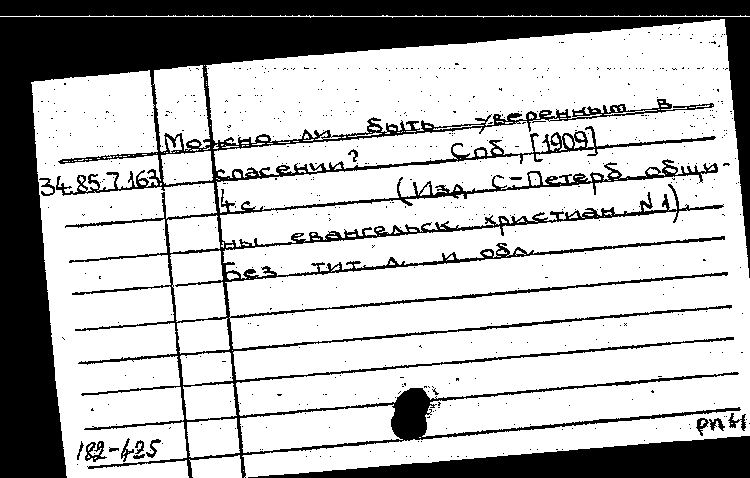 Можно ли быть уверенным в
34.85.7.163 спасении? Спб, [1909]
4 с. (Изд. С-Петерб. общи-
ны евангельск. христиан. N1).
Без тит. л. и обл.
182-425